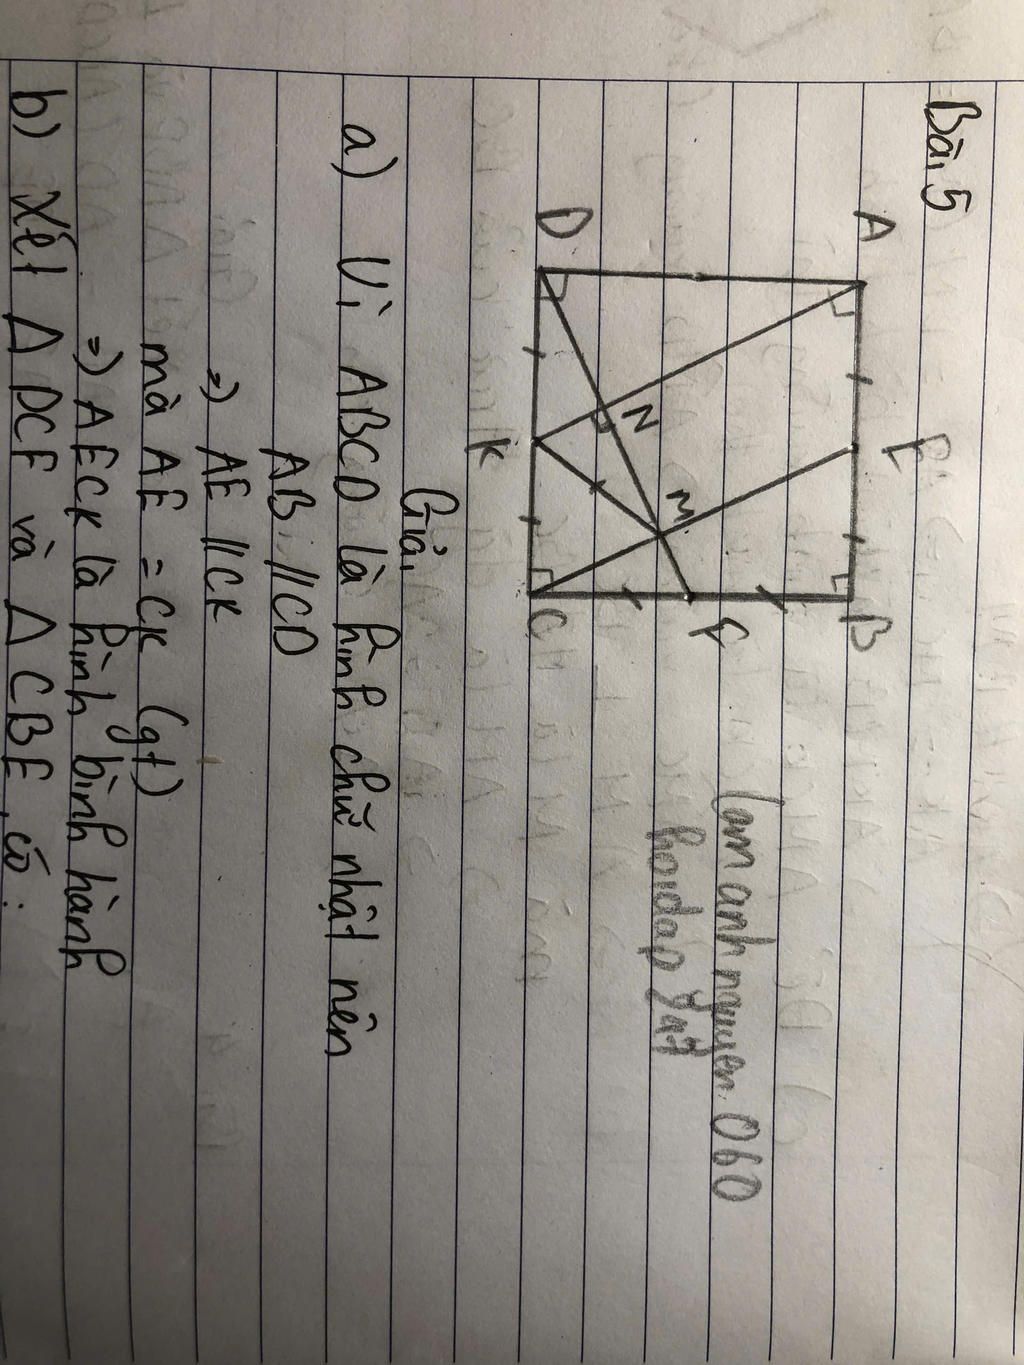 Bài 5
A
E
B
lamanhnguyen 060
hoidap 247
N
M
F
D
K
C
Giải
a) Vì ABCD là hình chữ nhật nên
AB // CD
=> AE // CK
mà AE = CK (gt)
=> AECK là hình bình hành
b) Xét Δ DCF và Δ CBE có :